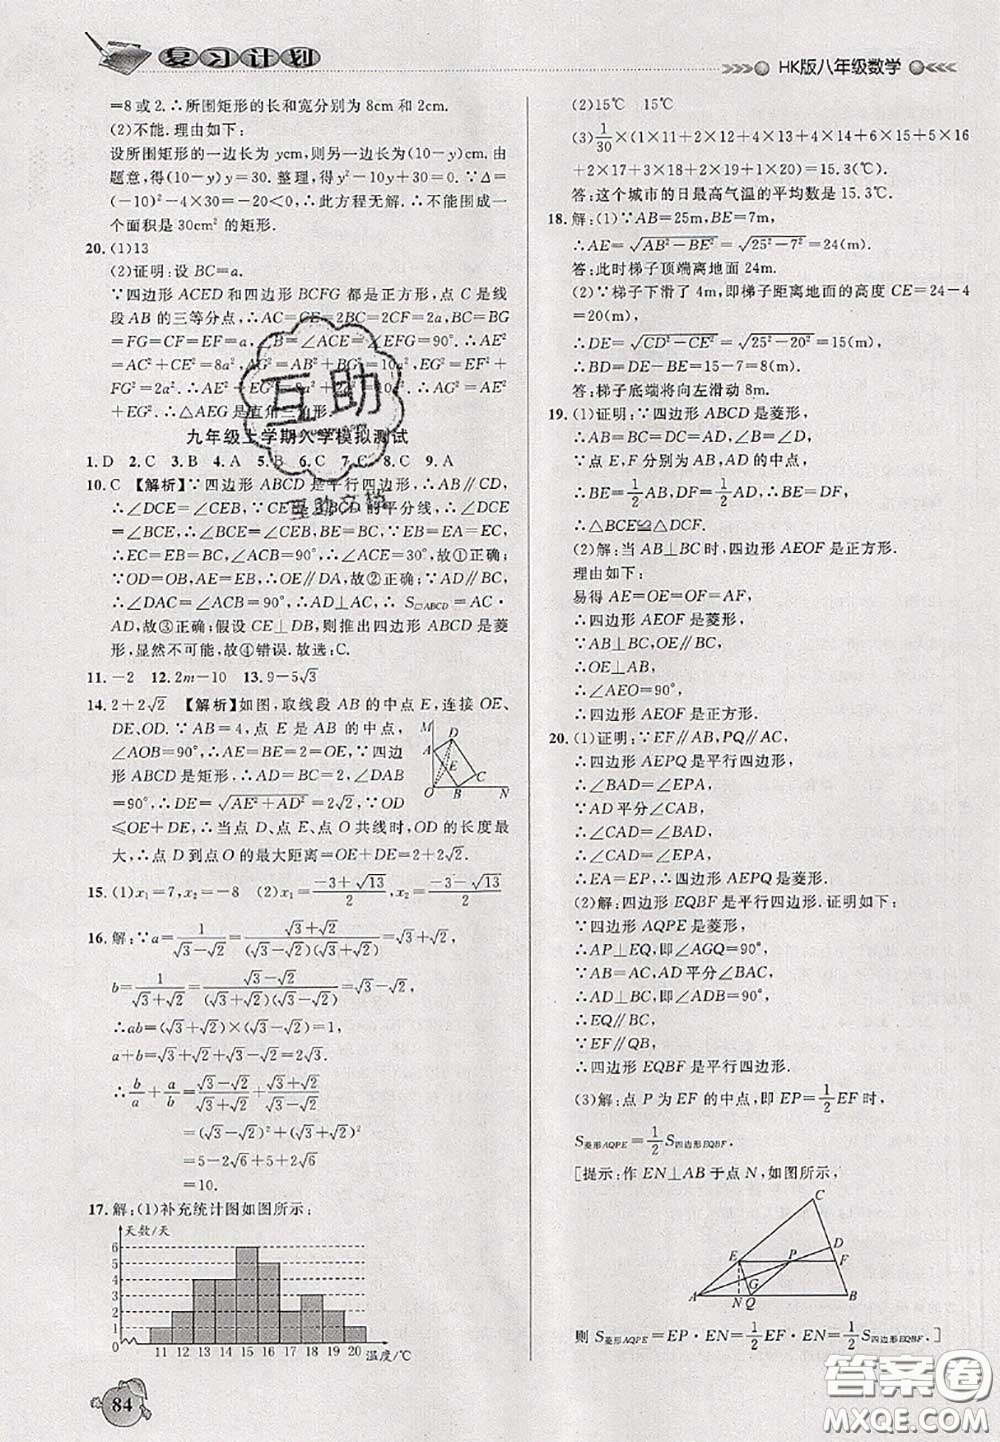 复习计划
HK版八年级数学
=8或2.∴所围矩形的长和宽分别为8cm和2cm.
(2)不能.理由如下:
设所围矩形的一边长为ycm,则另一边长为(10-y)cm.由
题意,得(10-y)y=30.整理,得y²-10y+30=0.∵Δ=
(-10)²-4×30=-20<0,∴此方程无解.∴不能围成一
个面积是30cm²的矩形.
20.(1)13
(2)证明:设BC=a.
∵四边形ACED和四边形BCFG都是正方形,点C是线
段AB的三等分点,∴AC=CE=2BC=2CF=2a,BC=BG
=FG=CF=EF=a,∠B=∠ACE=∠EFG=90°.∴AE²
=AC²+CE²=8a²,AG²=AB²+BG²=10a²,EG²=EF²+
FG²=2a².∴AE²+EG²=8a²+2a²=10a².∴AE²+EG²
=AG².∴△AEG是直角三角形.
九年级上学期入学模拟测试
1.D 2.C 3.B 4.A 5.B 6.C 7.C 8.C 9.A
10.C 【解析】∵四边形ABCD是平行四边形,∴AB∥CD,
∴∠DCE=∠CEB,∵CE为∠BCD的平分线,∴∠DCE
=∠BCE,∴∠CEB=∠BCE,∴BC=BE,∵EB=EA=EC,
∴∠ECA=∠EAC,∴∠ACB=90°,∴∠ACE=30°,故①正确;
∵OD=OB,AE=EB,∴OE∥DA,故②正确;∵AD∥BC,
∴∠DAC=∠ACB=90°,∴AD⊥AC,∴S▱ABCD=AD·
AC,故③正确;假设CE⊥DB,则推出四边形ABCD是菱
形,显然不可能,故④错误.故选:C.
11.-2 12.2m-10 13.9-5√3
14.2+2√2 【解析】如图,取线段AB的中点E,连接OE,
DE,OD.∵AB=4,点E是AB的中点,
∠AOB=90°,∴AE=BE=2=OE,∵四边
形ABCD是矩形,∴AD=BC=2,∠DAB
=90°,∴DE=√(AE²+AD²)=2√2,∵OD
≤OE+DE,∴当点D、点E、点O共线时,OD的长度最
大,∴点D到点O的最大距离=OE+DE=2+2√2.
M
D
A
E
C
O
B
N
15.(1)x₁=7,x₂=-8 (2)x₁=(-3+√13)/2,x₂=(-3-√13)/2
16.解:∵a=1/(√3-√2)=(√3+√2)/((√3-√2)(√3+√2))=√3+√2,
b=1/(√3+√2)=(√3-√2)/((√3+√2)(√3-√2))=√3-√2,
∴ab=(√3+√2)×(√3-√2)=1,
a+b=√3+√2+√3-√2=2√3.
∴b/a+a/b=(√3-√2)/(√3+√2)+(√3+√2)/(√3-√2)
=(√3-√2)²+(√3+√2)²
=5-2√6+5+2√6
=10.
17.解:(1)补充统计图如图所示:
天数/天
6
5
4
3
2
1
0
11 12 13 14 15 16 17 18 19 20 温度/℃
84
(2)15℃ 15℃
(3)1/30×(1×11+2×12+4×13+4×14+6×15+5×16
+2×17+3×18+2×19+1×20)=15.3(℃).
答:这个城市的日最高气温的平均数是15.3℃.
18.解:(1)∵AB=25m,BE=7m,
∴AE=√(AB²-BE²)=√(25²-7²)=24(m).
答:此时梯子顶端离地面24m.
(2)∵梯子下滑了4m,即梯子距离地面的高度CE=24-4
=20(m),
∴DE=√(CD²-CE²)=√(25²-20²)=15(m),
∴BD=DE-BE=15-7=8(m).
答:梯子底端将向左滑动8m.
19.(1)证明:∵四边形ABCD是菱形,
∴AB=BC=CD=AD,∠B=∠D.
∵点E,F分别为AB,AD的中点,
∴BE=1/2AB,DF=1/2AD,
∴BE=DF,
∴△BCE≌△DCF.
(2)解:当AB⊥BC时,四边形AEOF是正方形.
理由如下:
易得AE=OE=OF=AF,
∴四边形AEOF是菱形,
∵AB⊥BC,OE∥BC,
∴OE⊥AB,
∴∠AEO=90°,
∴四边形AEOF是正方形.
20.(1)证明:∵EF∥AB,PQ∥AC,
∴四边形AEPQ是平行四边形,
∴∠BAD=∠EPA,
∵AD平分∠CAB,
∴∠CAD=∠BAD,
∴∠CAD=∠EPA,
∴EA=EP,∴四边形AEPQ是菱形.
(2)解:四边形EQBF是平行四边形.证明如下:
∵四边形AQPE是菱形,
∴AP⊥EQ,即∠AGQ=90°.
∵AB=AC,AD平分∠BAC,
∴AD⊥BC,即∠ADB=90°,
∴EQ∥BC,
∵EF∥QB,
∴四边形EQBF是平行四边形.
(3)解:点P为EF的中点,即EP=1/2EF时,
S菱形AQPE=1/2S四边形EQBF.
[提示:作EN⊥AB于点N,如图所示,
C
E
P
D
F
G
A
N
Q
B
则S菱形AQPE=EP·EN=1/2EF·EN=1/2S四边形EQBF.]
互助
互助文档
答案圈
MXQE.COM